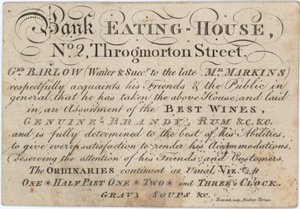 Bank EATING-HOUSE,
No. 2, Throgmorton Street.
Geo. BARLOW (Waiter & Succr. to the late Mr. MARKINS)
respectfully acquaints his Friends & the Public in
general, that he has taken the above House, and laid
in, an Assortment of the BEST WINES,
GENUINE BRANDY, RUM &c. &c.
and is fully determined to the best of his Abilities,
to give every satisfaction to render his Accommodations,
deserving the attention of his Friends and Customers.
The ORDINARIES continued as Usual, Viz. at
ONE * HALF PAST ONE * TWO * and THREE o'CLOCK.
GRAVY SOUPS &c.